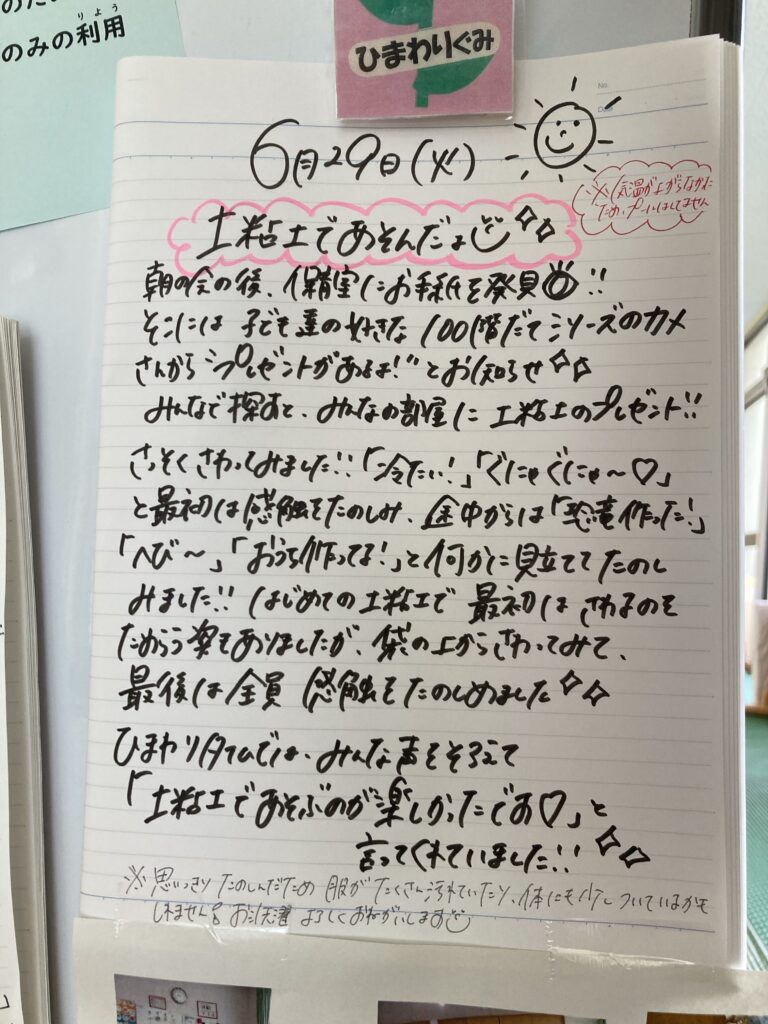 のみの利用
りよう
ひまわりぐみ
No.
Date
6月29日(火)
※気温が上がらなかった
ため、プールはしてません
土粘土であそんだよ
朝の会の後、保育室にお手紙を発見!!
そこには子ども達の好きな100階だてシリーズのカメ
さんから"プレゼントがあるよ!"とお知らせ
みんなで探すと、みんなの部屋に土粘土のプレゼント!!
さっそくさわってみました!!「冷たい!」「ぐにゃぐにゃ〜♡」
と最初は感触をたのしみ、途中からは「恐竜作った!」
「へび〜」「おうち作ってるよ!」と何かに見立ててたのし
みました!! はじめての土粘土で最初はさわるのを
ためらう姿もありましたが、袋の上からさわってみて、
最後は全員感触をたのしめました
ひまわりタイムでは、みんな声をそろえて
「土粘土であそぶのが楽しかったです♡」と
言ってくれていました!!
※思いっきりたのしんだため服がたくさん汚れていたり、体にも少しついているかも
しれません。お洗濯よろしくお願いします